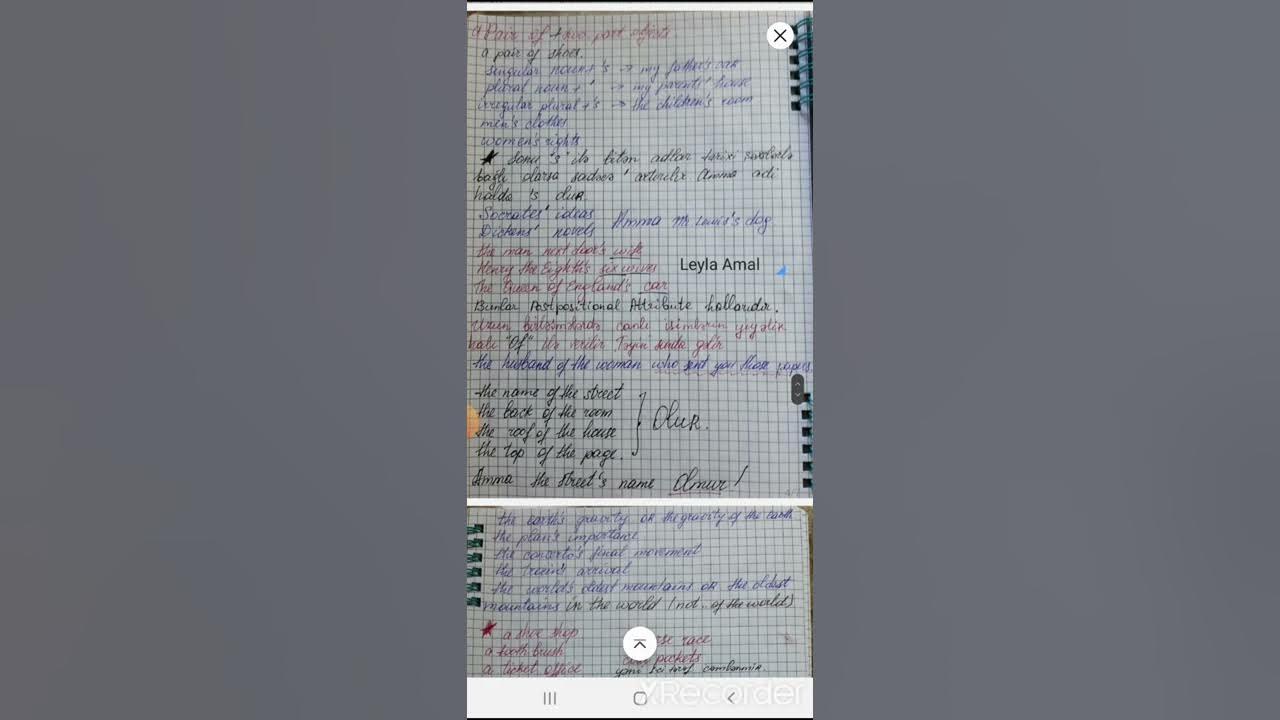 a Pair of + two part objects
a pair of shoes.
singular noun + 's → my father's car
plural noun + ' → my parents' house
irregular plural + 's → the children's room
men's clothes
women's rights
sonu "s" ilə bitən adlar tarixi şəxslərlə
bağlı olarsa sadəcə ' artırılır Amma adi
halda 's olur.
Socrates' ideas
Dickens' novels Amma Mr Lewis's dog
the man next door's wife
Henry the Eighth's six wives
The Queen of England's car
Leyla Amal
Bunlar Postpositional Attribute hallarıdır.
Uzun birləşmələrdə canlı isimlərin yiyəlik
halı "Of" ilə verilir Təyin
the husband of the woman who sent you those papers.
the name of the street
the back of the room
the roof of the house
the top of the page.
Olur.
Amma the street's name Olmur!
the earth's gravity or the gravity of the earth
the plan's importance
the concerto's final movement
the train's arrival
the world's oldest mountains or the oldest
mountains in the world (not .. of the world)
a shoe shop
race
a toothbrush
pockets
a ticket office
XRecorder